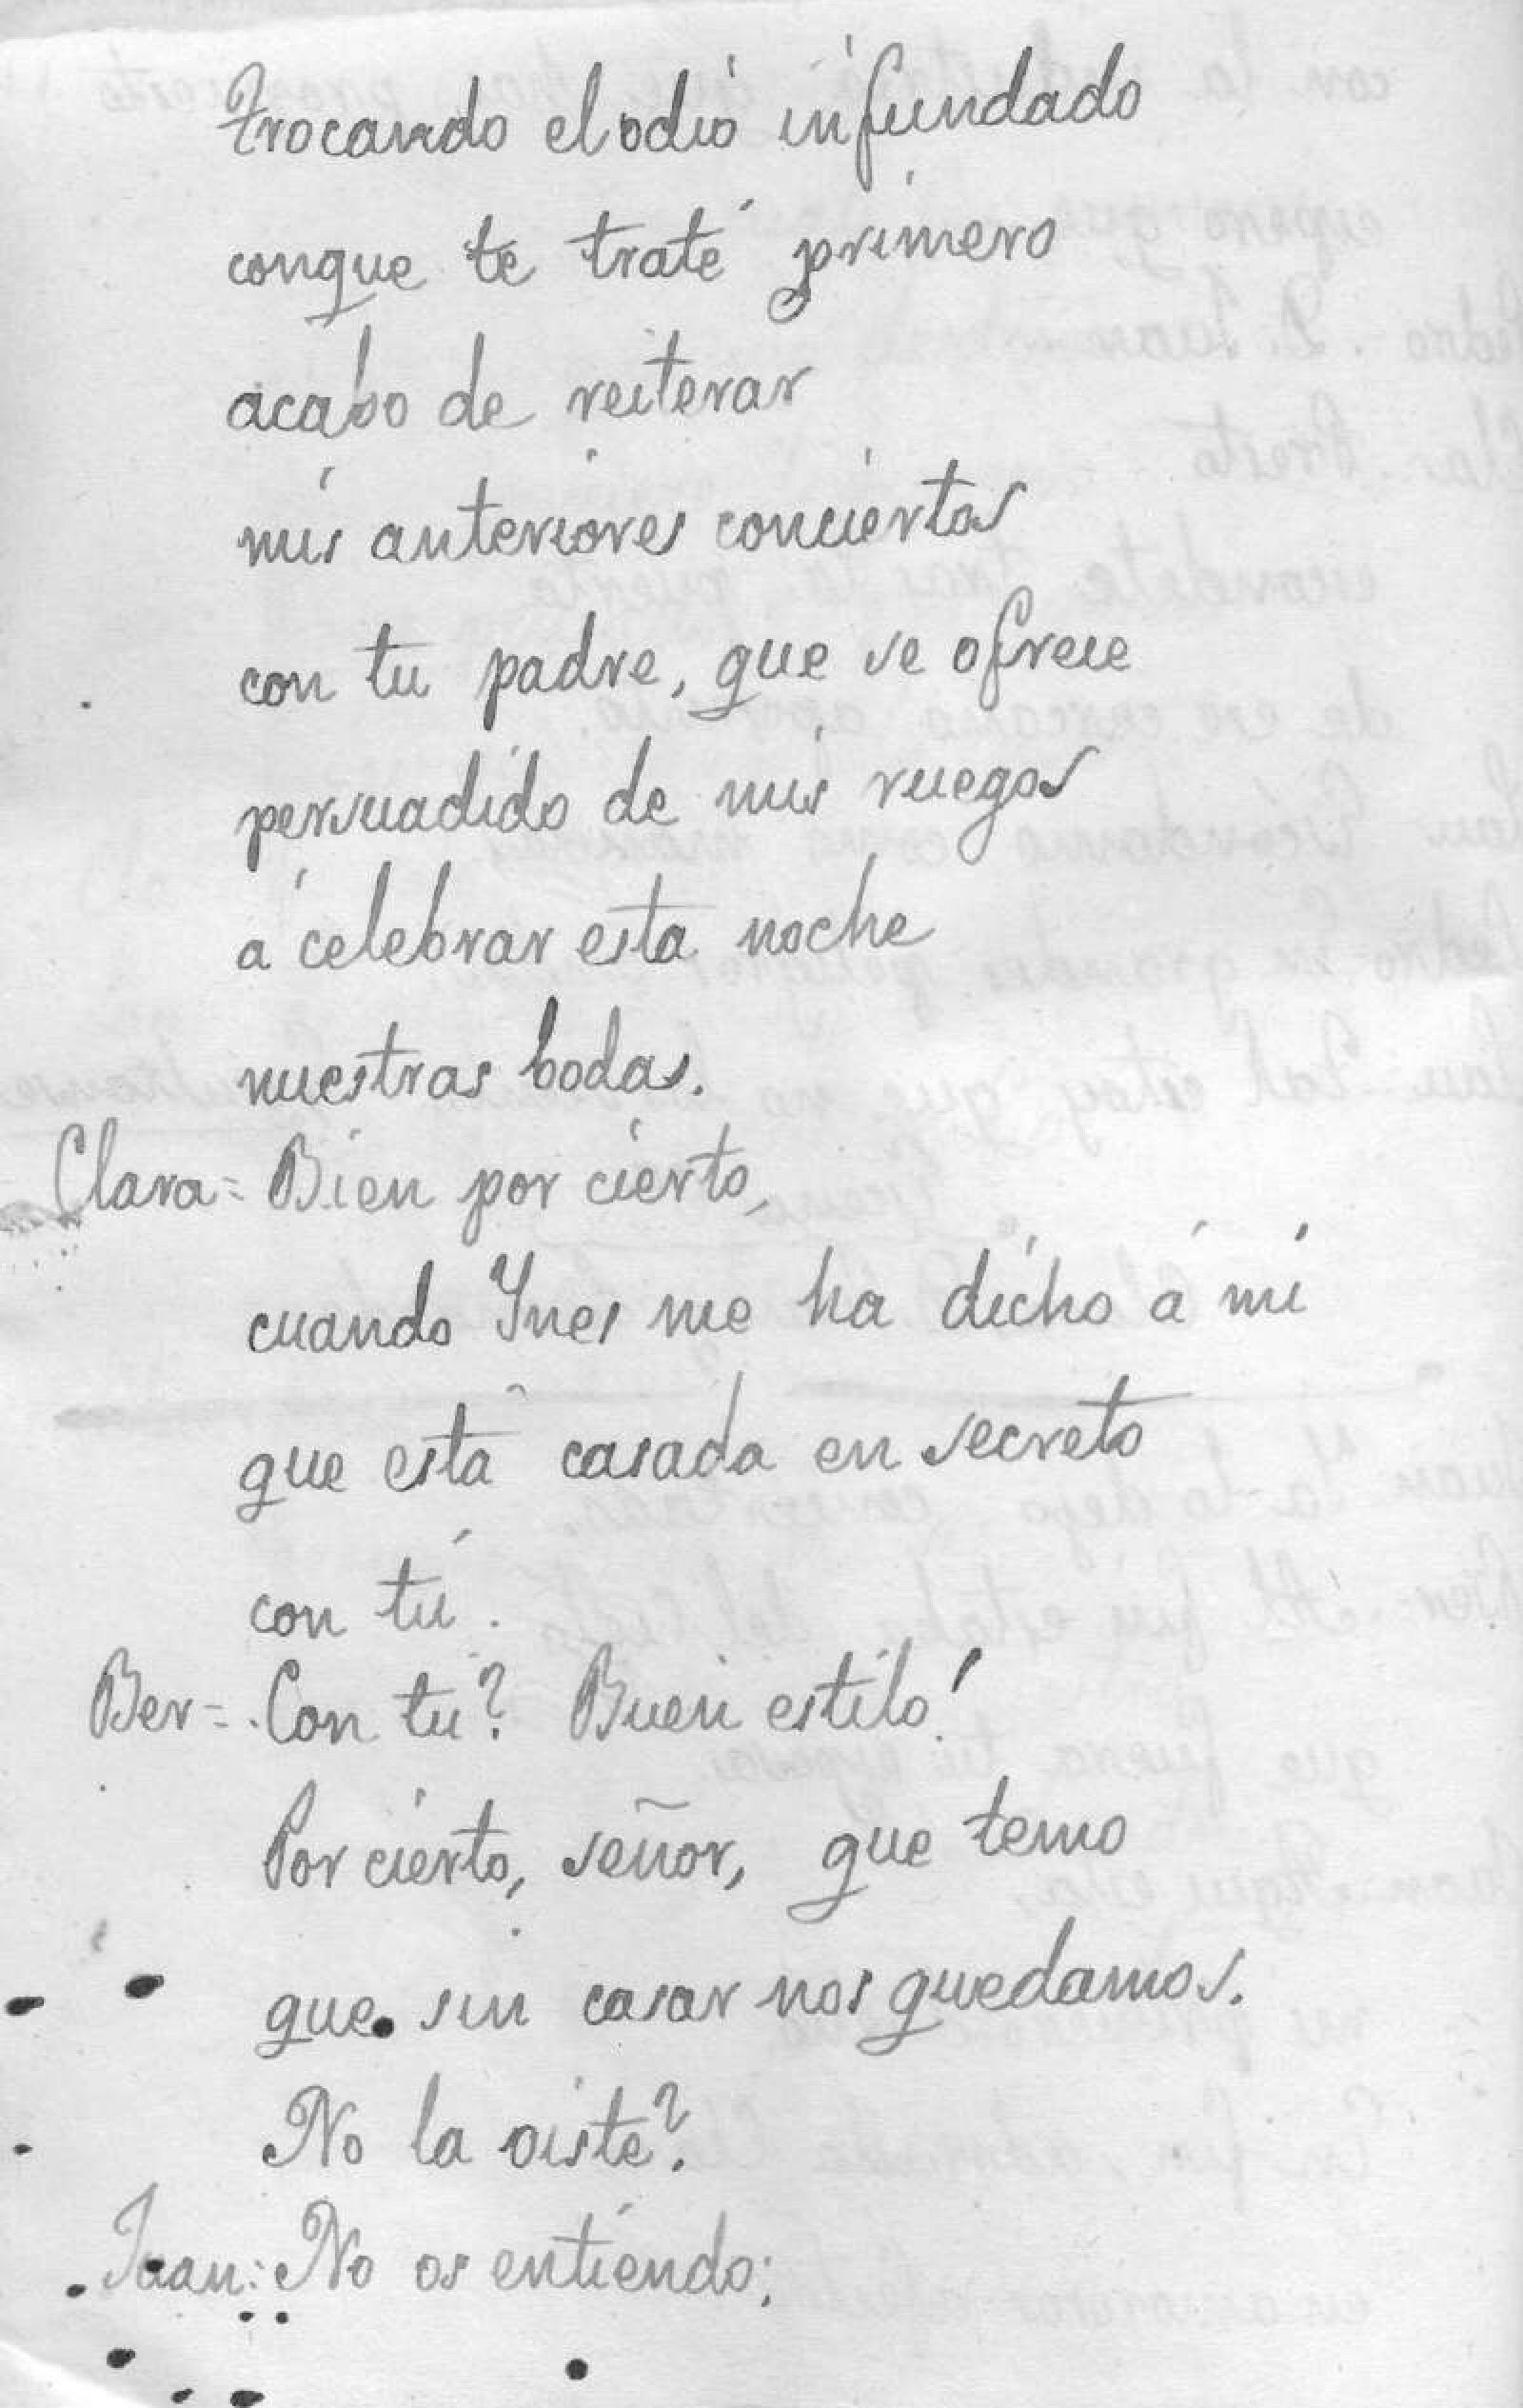 trocando el odio infundado
conque te traté primero
acabo de reiterar
mis anteriores conciertos
con tu padre, que se ofrece
persuadido de mis ruegos
á celebrar esta noche
nuestras bodas.
Clara = Bien por cierto,
cuando Ynes me ha dicho á mí
que está casada en secreto
con tú.
Ber = Con tú? Buen estilo!
Por cierto, señor, que temo
que sin casar nos quedamos.
No la oiste?
Juan: No os entiendo;